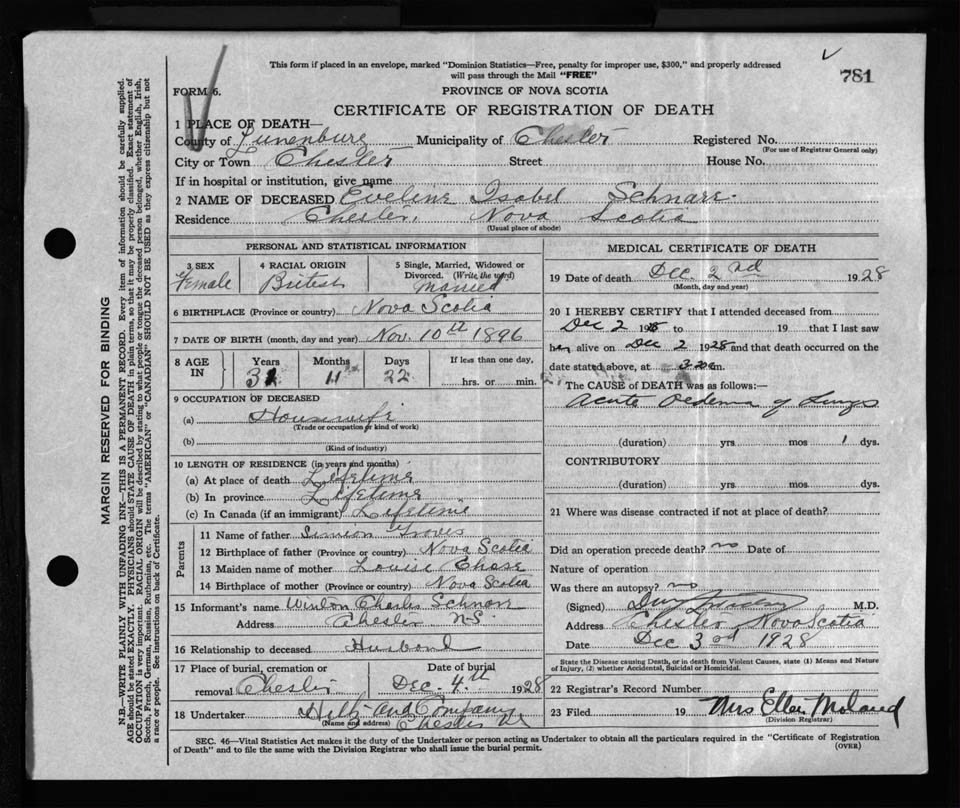 This form if placed in an envelope, marked "Dominion Statistics—Free, penalty for improper use, $300," and properly addressed
will pass through the Mail "FREE"
781
FORM 6.
PROVINCE OF NOVA SCOTIA
CERTIFICATE OF REGISTRATION OF DEATH
1 PLACE OF DEATH—
County of Lunenburg Municipality of Chester Registered No.
(For use of Registrar General only)
City or Town Chester Street House No.
If in hospital or institution, give name
2 NAME OF DECEASED Eveline Isabel Schnare
Residence Chester, Nova Scotia
(Usual place of abode)
PERSONAL AND STATISTICAL INFORMATION
3 SEX Female
4 RACIAL ORIGIN British
5 Single, Married, Widowed or Divorced. (Write the word) Married
6 BIRTHPLACE (Province or country) Nova Scotia
7 DATE OF BIRTH (month, day and year) Nov. 10th 1896
8 AGE IN Years Months Days If less than one day,
22 hrs. or min.
9 OCCUPATION OF DECEASED
(a) Housewife
(Trade or occupation or kind of work)
(b)
(Kind of industry)
10 LENGTH OF RESIDENCE (in years and months)
(a) At place of death Lifetime
(b) In province Lifetime
(c) In Canada (if an immigrant) Lifetime
Parents
11 Name of father Simeon
12 Birthplace of father (Province or country) Nova Scotia
13 Maiden name of mother Louise Chase
14 Birthplace of mother (Province or country) Nova Scotia
15 Informant's name Winton Charles Schnare
Address Chester N.S.
16 Relationship to deceased Husband
17 Place of burial, cremation or removal Chester
Date of burial Dec. 4th 1928
18 Undertaker Hiltz and Company
(Name and address) Chester
MEDICAL CERTIFICATE OF DEATH
19 Date of death Dec. 2nd 1928
(Month, day and year)
20 I HEREBY CERTIFY that I attended deceased from
Dec 2 1928 to 19 that I last saw
her alive on Dec 2 1928 and that death occurred on the
date stated above, at m.
The CAUSE of DEATH was as follows:—
Acute Oedema of Lungs
(duration) yrs. mos 1 dys.
CONTRIBUTORY
(duration) yrs. mos. dys.
21 Where was disease contracted if not at place of death?
Did an operation precede death? no Date of
Nature of operation
Was there an autopsy? no
(Signed) M.D.
Address Chester Nova Scotia
Date Dec 3rd 1928
State the Disease causing Death, or in death from Violent Causes, state (1) Means and Nature
of Injury, (2) whether Accidental, Suicidal or Homicidal.
22 Registrar's Record Number
23 Filed 19 Mrs Ellen
(Division Registrar)
SEC. 46—Vital Statistics Act makes it the duty of the Undertaker or person acting as Undertaker to obtain all the particulars required in the "Certificate of Registration
of Death" and to file the same with the Division Registrar who shall issue the burial permit.
(OVER)
MARGIN RESERVED FOR BINDING
N.B.—WRITE PLAINLY WITH UNFADING INK—THIS IS A PERMANENT RECORD. Every item of information should be carefully supplied.
AGE should be stated EXACTLY. PHYSICIANS should STATE CAUSE OF DEATH in plain terms, so that it may be properly classified. Exact statement of
OCCUPATION is very important. RACIAL ORIGIN will be described by stating to what people or tongue the deceased person belonged, whether English, Irish,
Scotch, French, German, Russian, Ruthenian, etc. The terms "AMERICAN" or "CANADIAN" SHOULD NOT BE USED as they express citizenship but not
a race or people. See instructions on back of Certificate.